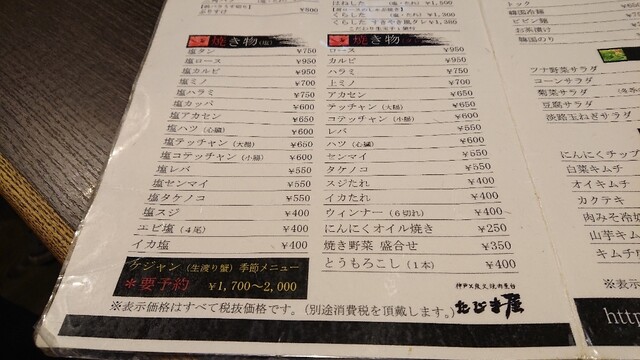 ¥500
はねした
¥1,300
くらした すきやき風タレ ¥1,380
焼き物(塩)
塩タン ¥750
塩ロース ¥950
塩カルビ ¥950
塩ミノ ¥700
塩ハラミ ¥750
塩カッパ ¥600
塩アカセン ¥650
塩ハツ(心臓) ¥600
塩テッチャン(大腸) ¥650
塩コテッチャン(小腸) ¥600
塩レバ ¥550
塩センマイ ¥550
塩タケノコ ¥550
塩スジ ¥400
エビ塩(4尾) ¥400
イカ塩 ¥400
ケジャン(生渡り蟹)季節メニュー
*要予約 ¥1,700~2,000
焼き物
ロース ¥950
カルビ ¥950
ハラミ ¥750
上ミノ ¥700
アカセン ¥650
テッチャン(大腸) ¥650
コテッチャン(小腸) ¥600
レバ ¥550
ハツ(心臓) ¥600
センマイ ¥550
タケノコ ¥550
スジたれ ¥400
イカたれ ¥400
ウィンナー(6切れ) ¥400
にんにくオイル焼き ¥250
焼き野菜 盛合せ ¥350
とうもろこし(1本) ¥400
※表示価格はすべて税抜価格です。(別途消費税を頂戴します。)
トック
韓国冷麺
ビビン麺
お茶漬け
韓国のり
ツナ野菜サラダ
コーンサラダ
菊菜サラダ
豆腐サラダ
淡路玉ねぎサラダ
にんにくチップ
白菜キムチ
オイキムチ
カクテキ
肉みそ冷奴
山芋キムチ
キムチ
http